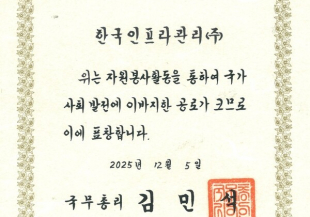 한국인프라관리(주)
위는 자원봉사활동을 통하여 국가
사회 발전에 이바지한 공로가 크므로
이에 표창합니다.
2025년 12월 5일
국무총리 김민석